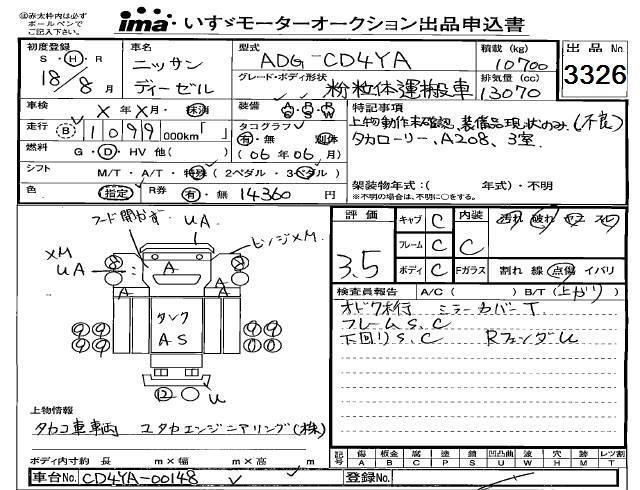 ㊟赤太枠内は必ず
ボールペンで
ご記入下さい。
ima・いすゞモーターオークション出品申込書
初度登録 車名 型式 積載(kg) 出品No.
S・H・R ニッサン ADG-CD4YA 10700 3326
18/8月 ディーゼル グレード・ボディ形状 排気量(cc)
粉粒体運搬車 13070
車検 X年X月・抹消 装備 特記事項
上物動作未確認、装備品現状のみ(不良)
走行 B 1099 000km「 」 タコグラフ 有・無 別体
タカローリー、A208、3室
燃料 G・D・HV 他( ) (06年06月)
シフト M/T・A/T・特殊(2ペダル・3ペダル) 架装物年式:( 年式)・不明
※不明の場合は、不明に○をする。
色 指定 R券 有・無 14360円
フード開かず UA
XM ピンジXM
UA A
A A
タンク
AS
⑫ U
評価 3.5
キャブ C 内装 C 汚れ 破れ
フレーム C
ボディ C Fガラス 割れ 線 点傷 イバリ
検査員報告 A/C( ) B/T(上がり)
オドク木行 ミラーカバーT
フレームS、C
下回りS、C RフェンダU
上物情報
タカコ車車両 ユタカエンジニアリング(株)
ボディ内寸約 長 m×幅 m×高 m
記号 傷A 板金B 腐C 塗P 錆S 凹凸曲U 波W 穴H 跡M レツ割T
車台No. CD4YA-00148 登録No.